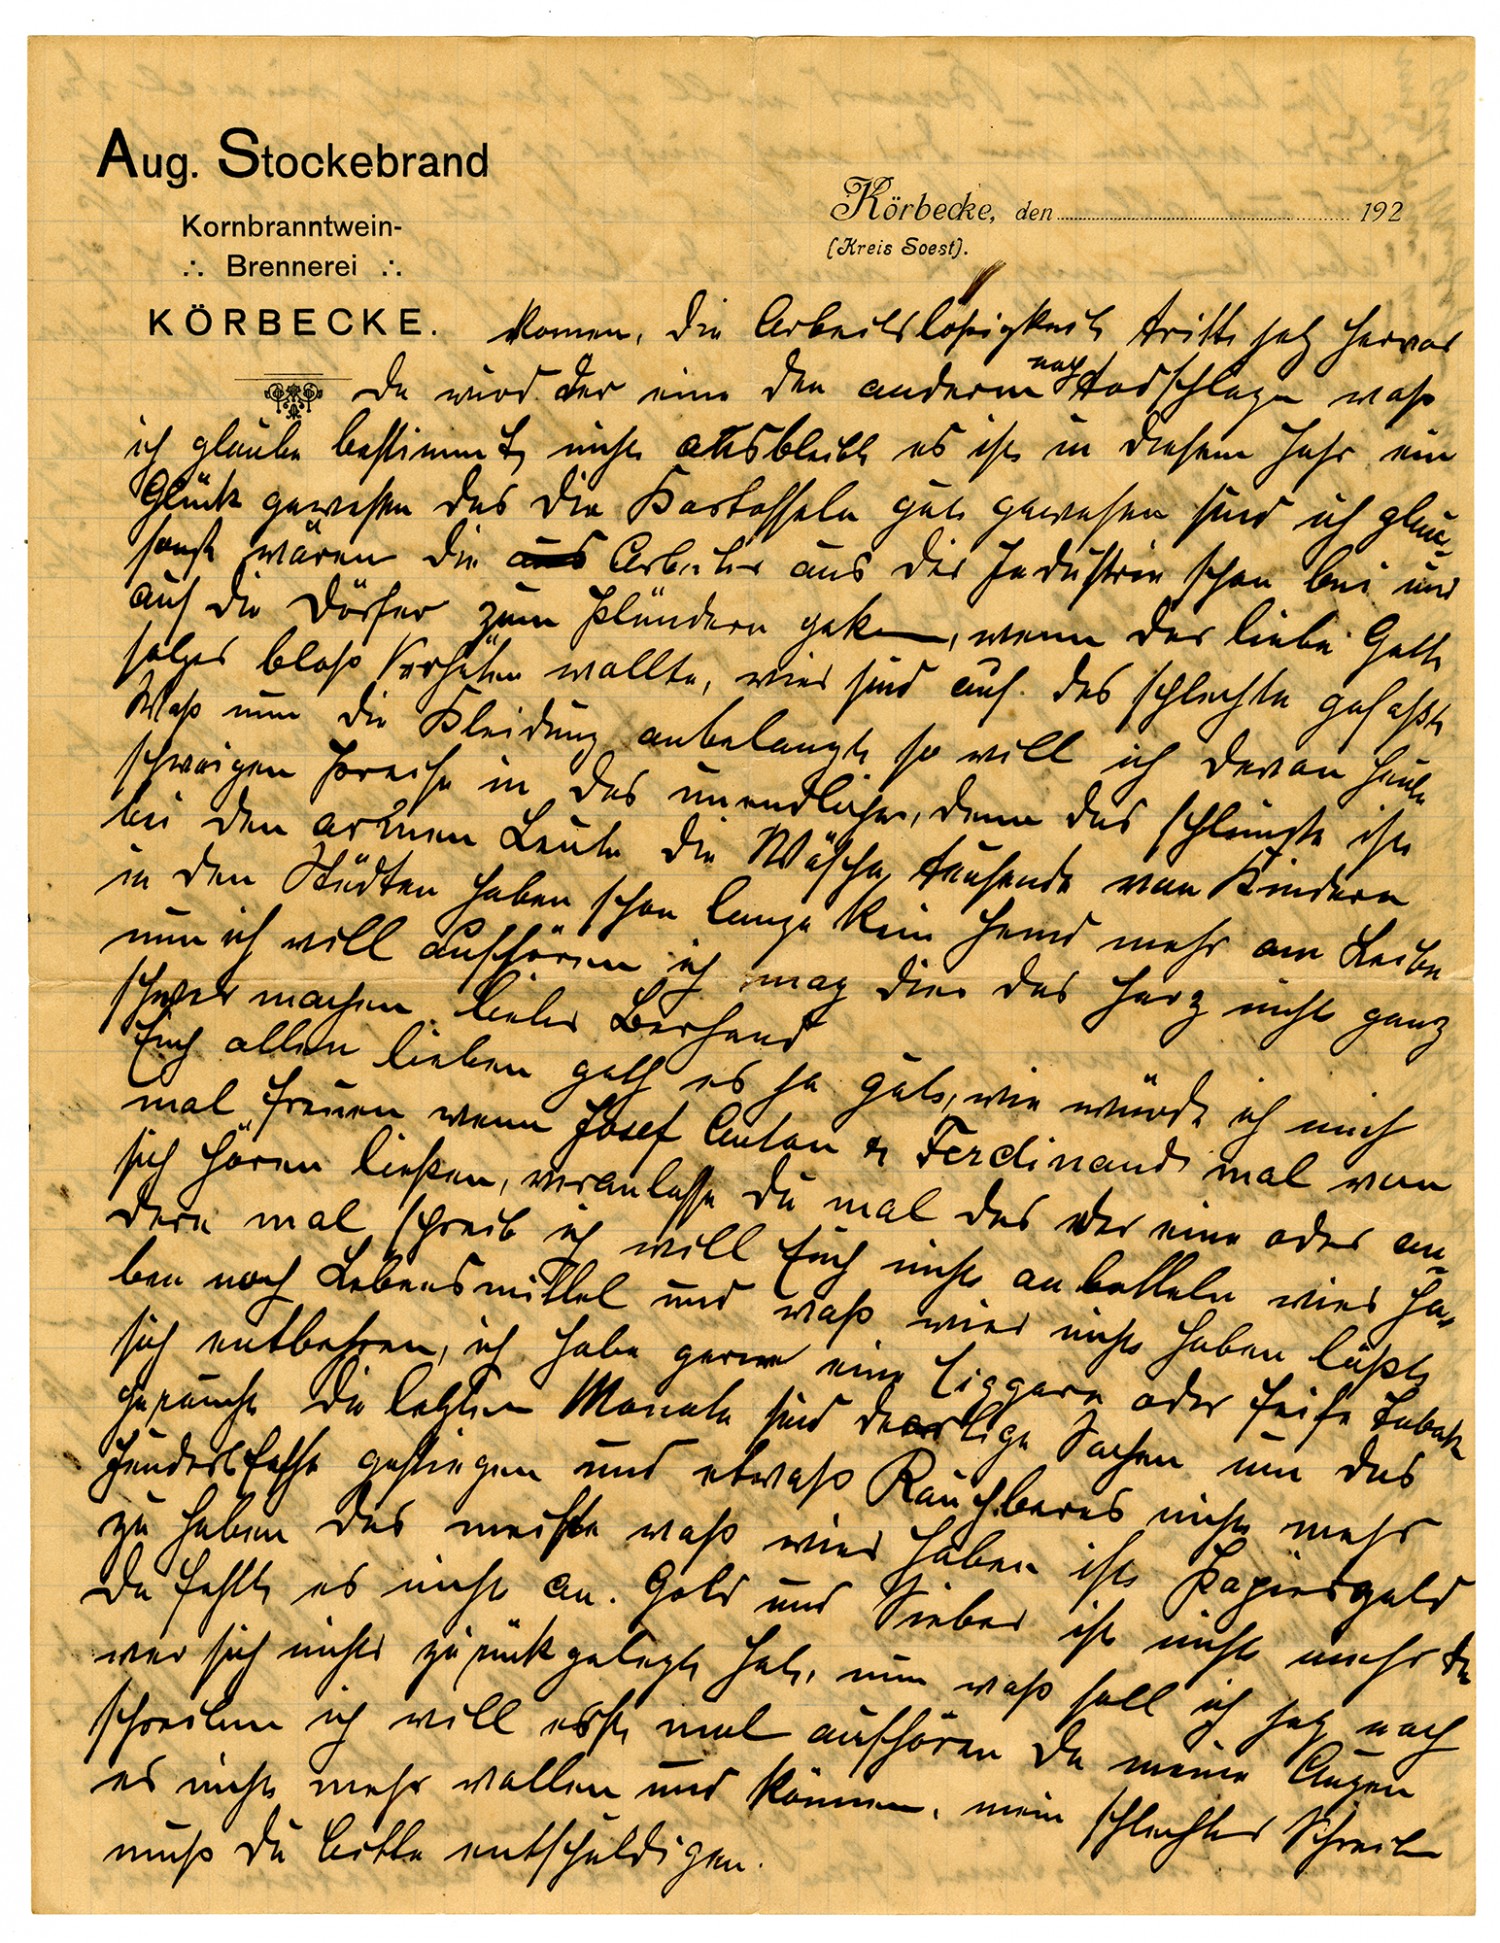 Aug. Stockebrand
Kornbranntwein-
∴ Brennerei ∴
KÖRBECKE.
Körbecke, den 192
(Kreis Soest).
komen, die Arbeitslößigkeit tritt jetz hervor
da wird der eine den anderen noch todschlagen waß
ich glaube bestimmt nicht ausbleibt es ist in diesem Jahr ein
Glück geweßen das die Kartoffeln gut gewesen sind ich glau-
sonst wären die aus Arbeiter aus der Industrie schon bei uns
auf die Dörfer zum plündern gekommen, wenn der liebe Gott
solges bloß verhüten wollte, wier sind auf das schlechte gefaßt
Waß nun die Kleidung anbelangt so will ich davon heute
schweigen Preise in das unendliche, denn das schlimste ist
bei den armen Leute die Wäsche, tausende von Kindern
in den Städten haben schon lange kein Hemd mehr am Leibe
nun ich will aufhören ich mag dier das Herz nicht ganz
schwer machen lieber Bernhard
Euch allen lieben geth es ja gut, wie würde ich mich
mal freuen wenn Josef Anton & Ferdinand mal von
sich hören ließen, veranlasse du mal das der eine oder an-
dere mal schreib ich will Euch nicht anbetteln wier ha-
ben noch Lebensmittel und waß wier nicht haben läßt
sich entbehren, ich habe gerne eine Ziggare oder Feife Tabak
geraucht die letzten Monate sind derartige Sachen um das
hundertfache gestiegen und etwaß Rauchbares nicht mehr
zu haben das meiste waß wier haben ist Papiergeld
da fehlt es nicht an. Gold und Sieber ist nicht mehr da
wer sich nichts zurückgelegt hat, nun waß soll ich jetz noch
schreiben ich will erst mal aufhören da meine Augen
es nicht mehr wollen und können. mein schlechtes Schreiben
muß du bitte entschuldigen.